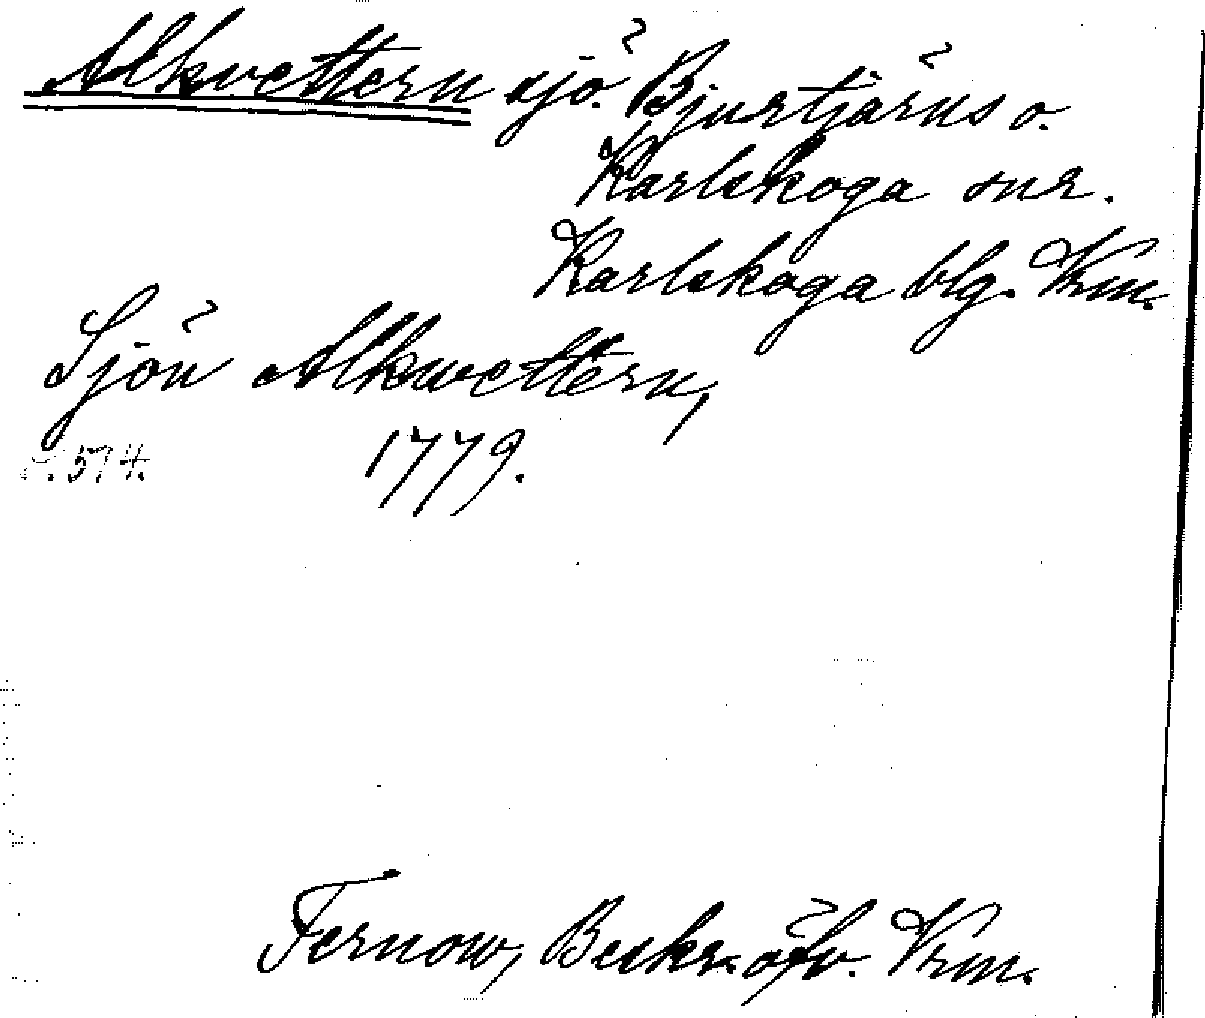 Alkvettern sjö. Bjurtjärns o.
Karlskoga snr.
Karlskoga blg. Vrm.
Sjön Alkwettern,
1779.
s. 574.
Fernow, Beskr. öfv. Vrm.